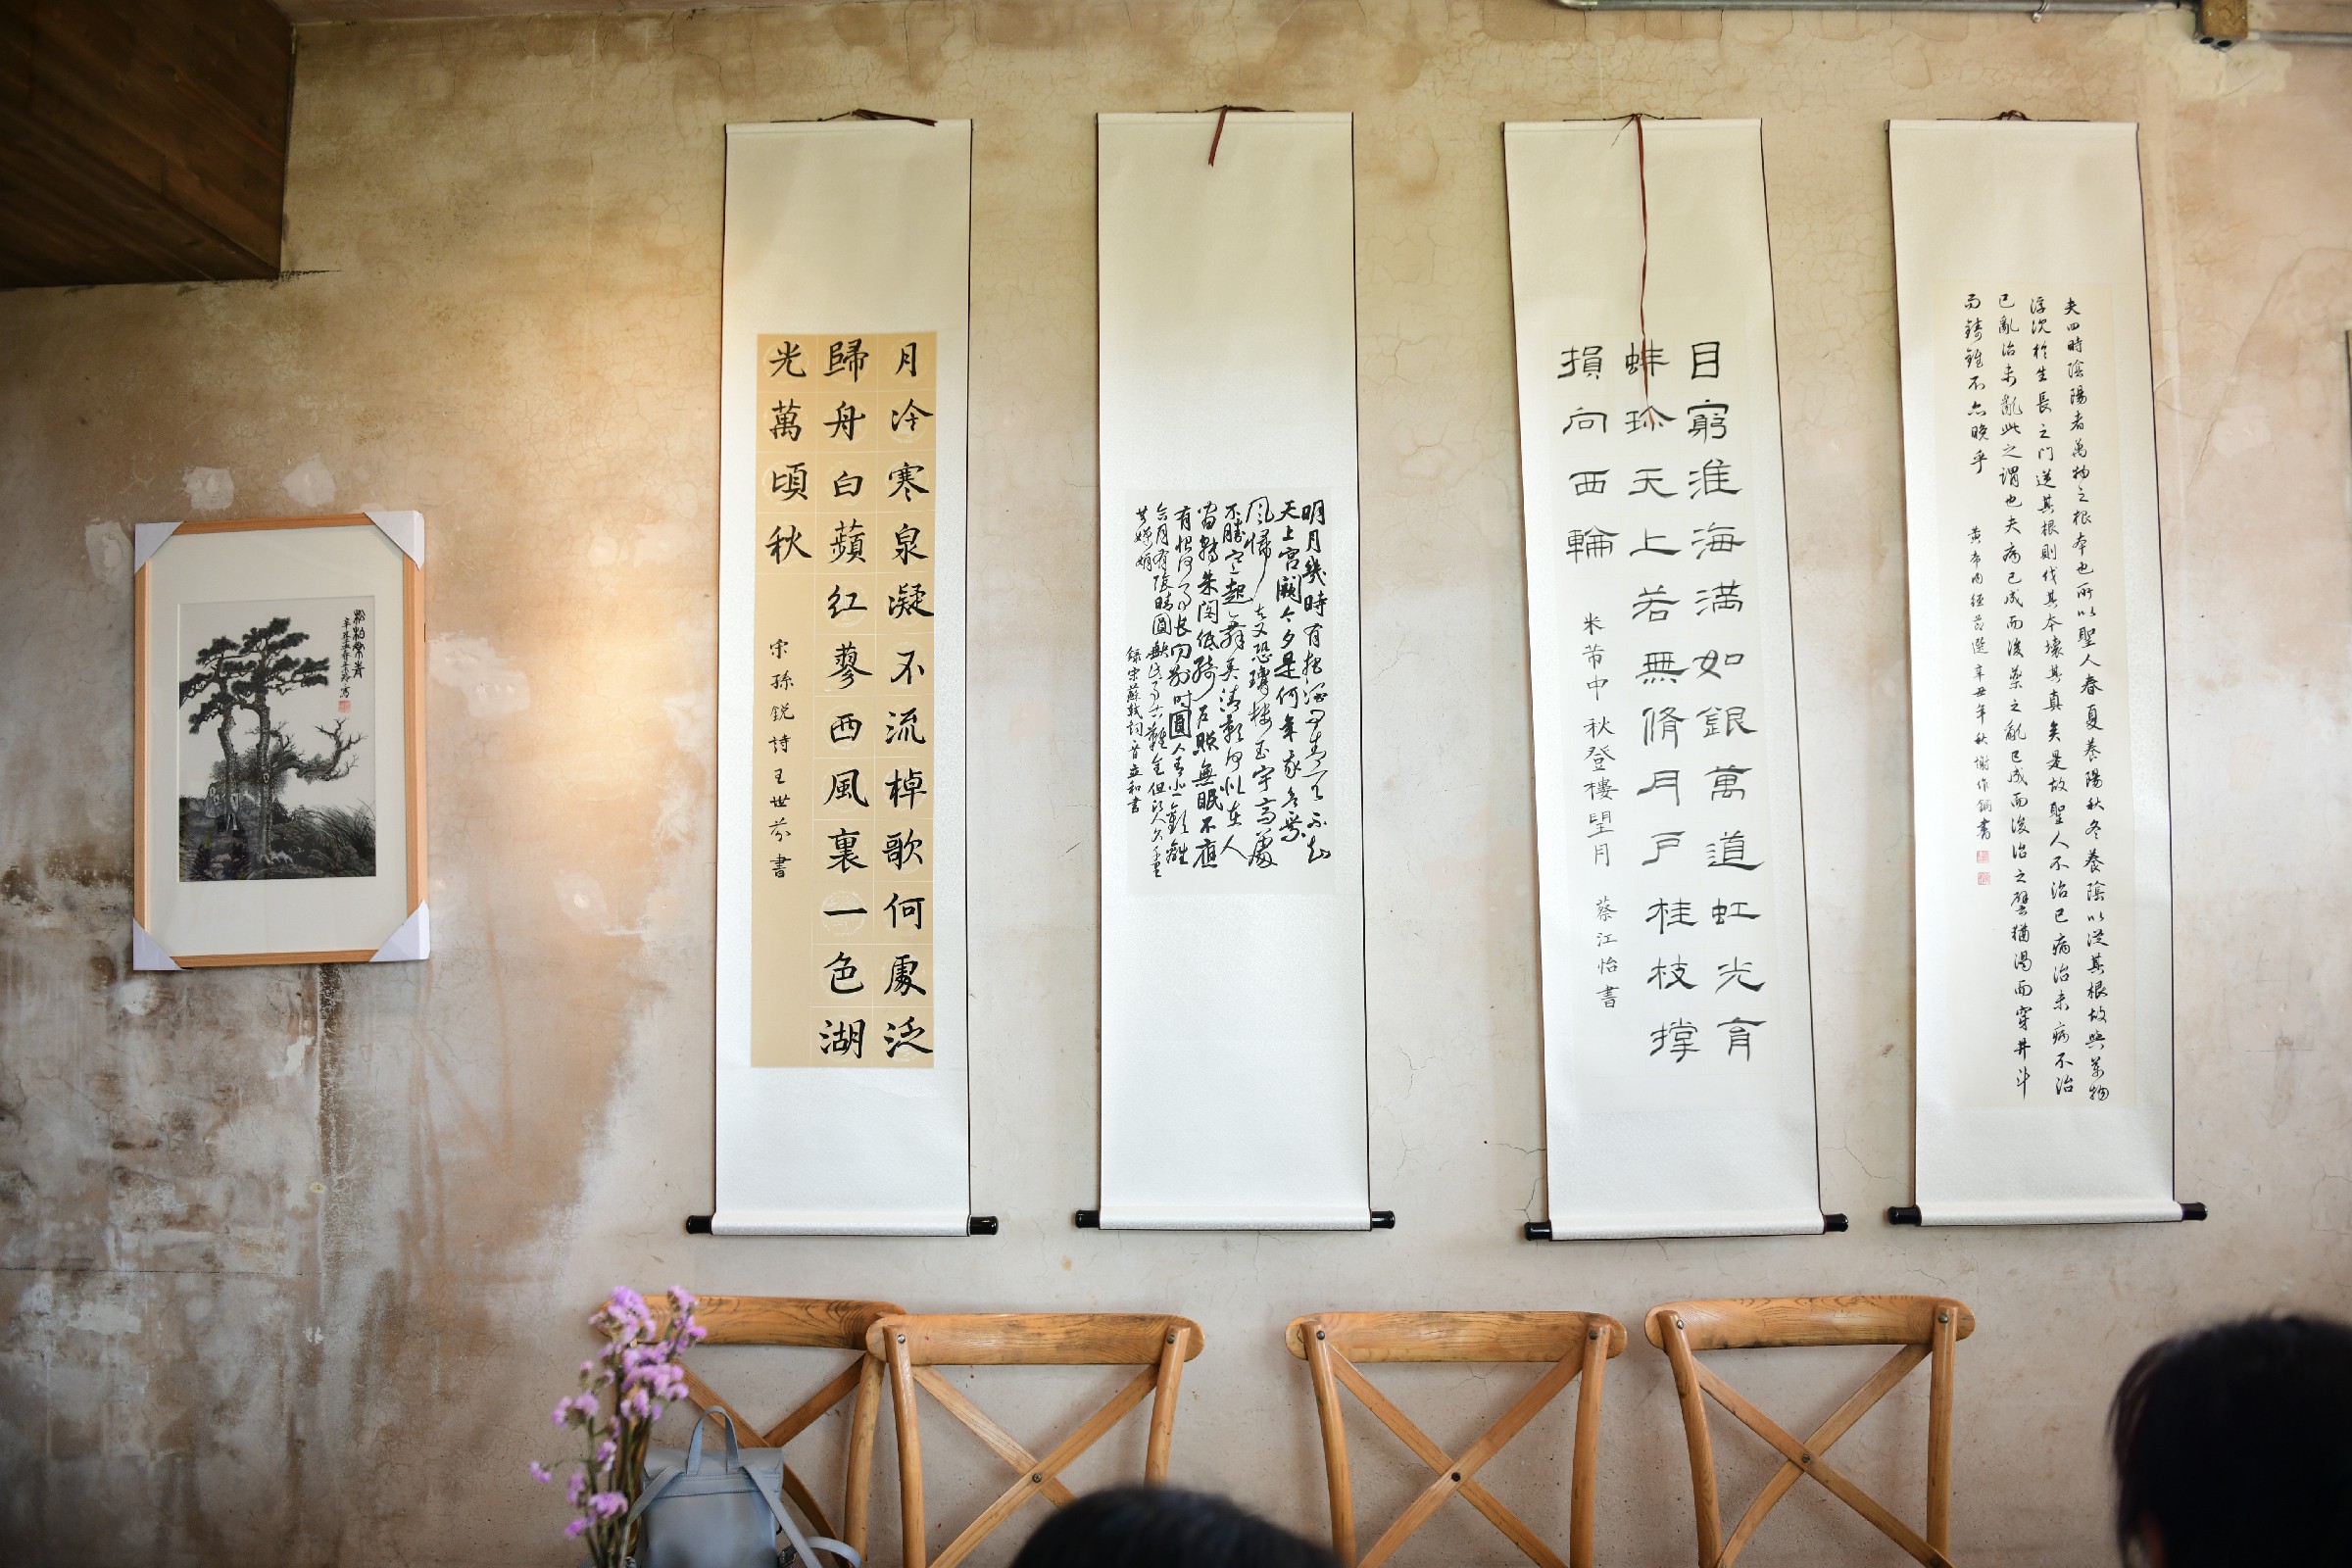 松柏常青
月冷寒泉凝不流棹歌何處泛
歸舟白蘋紅蓼西風裏一色湖
光萬頃秋
宋孫銳詩王世芬書
明月幾時有把酒問青天不知
天上宮闕今夕是何年我欲乘
風歸去又恐瓊樓玉宇高處
不勝寒起舞弄清影何似在人
間轉朱閣低綺戶照無眠不應
有恨何事長向別時圓人有悲歡離
合月有陰晴圓缺此事古難全但願人長久千里
共嬋娟
錄宋蘇軾詞
目窮淮海滿如銀萬道虹光育
蚌珍天上若無脩月戶桂枝撐
損向西輪
米芾中秋登樓望月 蔡江怡書
夫四時陰陽者萬物之根本也所以聖人春夏養陽秋冬養陰以從其根故與萬物
浮沉於生長之門逆其根則伐其本壞其真矣是故聖人不治已病治未病不治
已亂治未亂此之謂也夫病已成而後藥之亂已成而後治之譬猶渴而穿井斗
而鑄錐不亦晚乎
黃帝內經節選辛丑年秋謝作鋼書